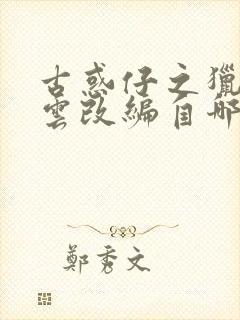 古惑仔之獵
雲改編自哪
鄭秀文